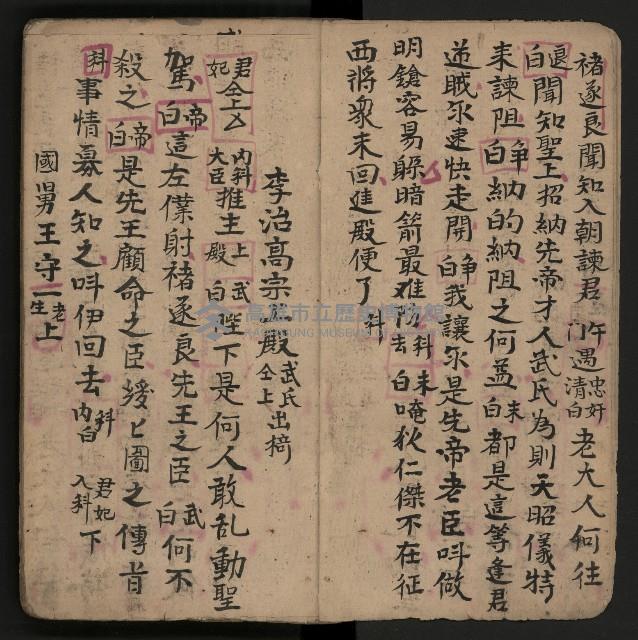 褚遂良聞知入朝諫君 午門遇忠奸清白 老大人何往
退白聞知聖上招納先帝才人武氏為則天昭儀特
来諫阻 争白納的納阻之何益 末白都是這等逢君
逆賊永速快走開 争白我讓永是先帝老臣叫做
明鎗容易躱暗箭最难防 科去 末白唵狄仁傑不在征
西將衆未回進殿便了 科
李治高宗登殿 武氏仝上 出掎
君妃仝上 内科大臣推主 上殿 武白陛下是何人敢乱動聖
駕 帝白這左僕射褚遂良先王之臣 武白何不
殺之 帝白是先王顧命之臣緩匕圖之傳旨
科事情寡人知之叫伊回去 科内白 君妃入科下
國舅王守一 老生上
高雄市立歷史博物館
KAOHSIUNG MUSEUM OF